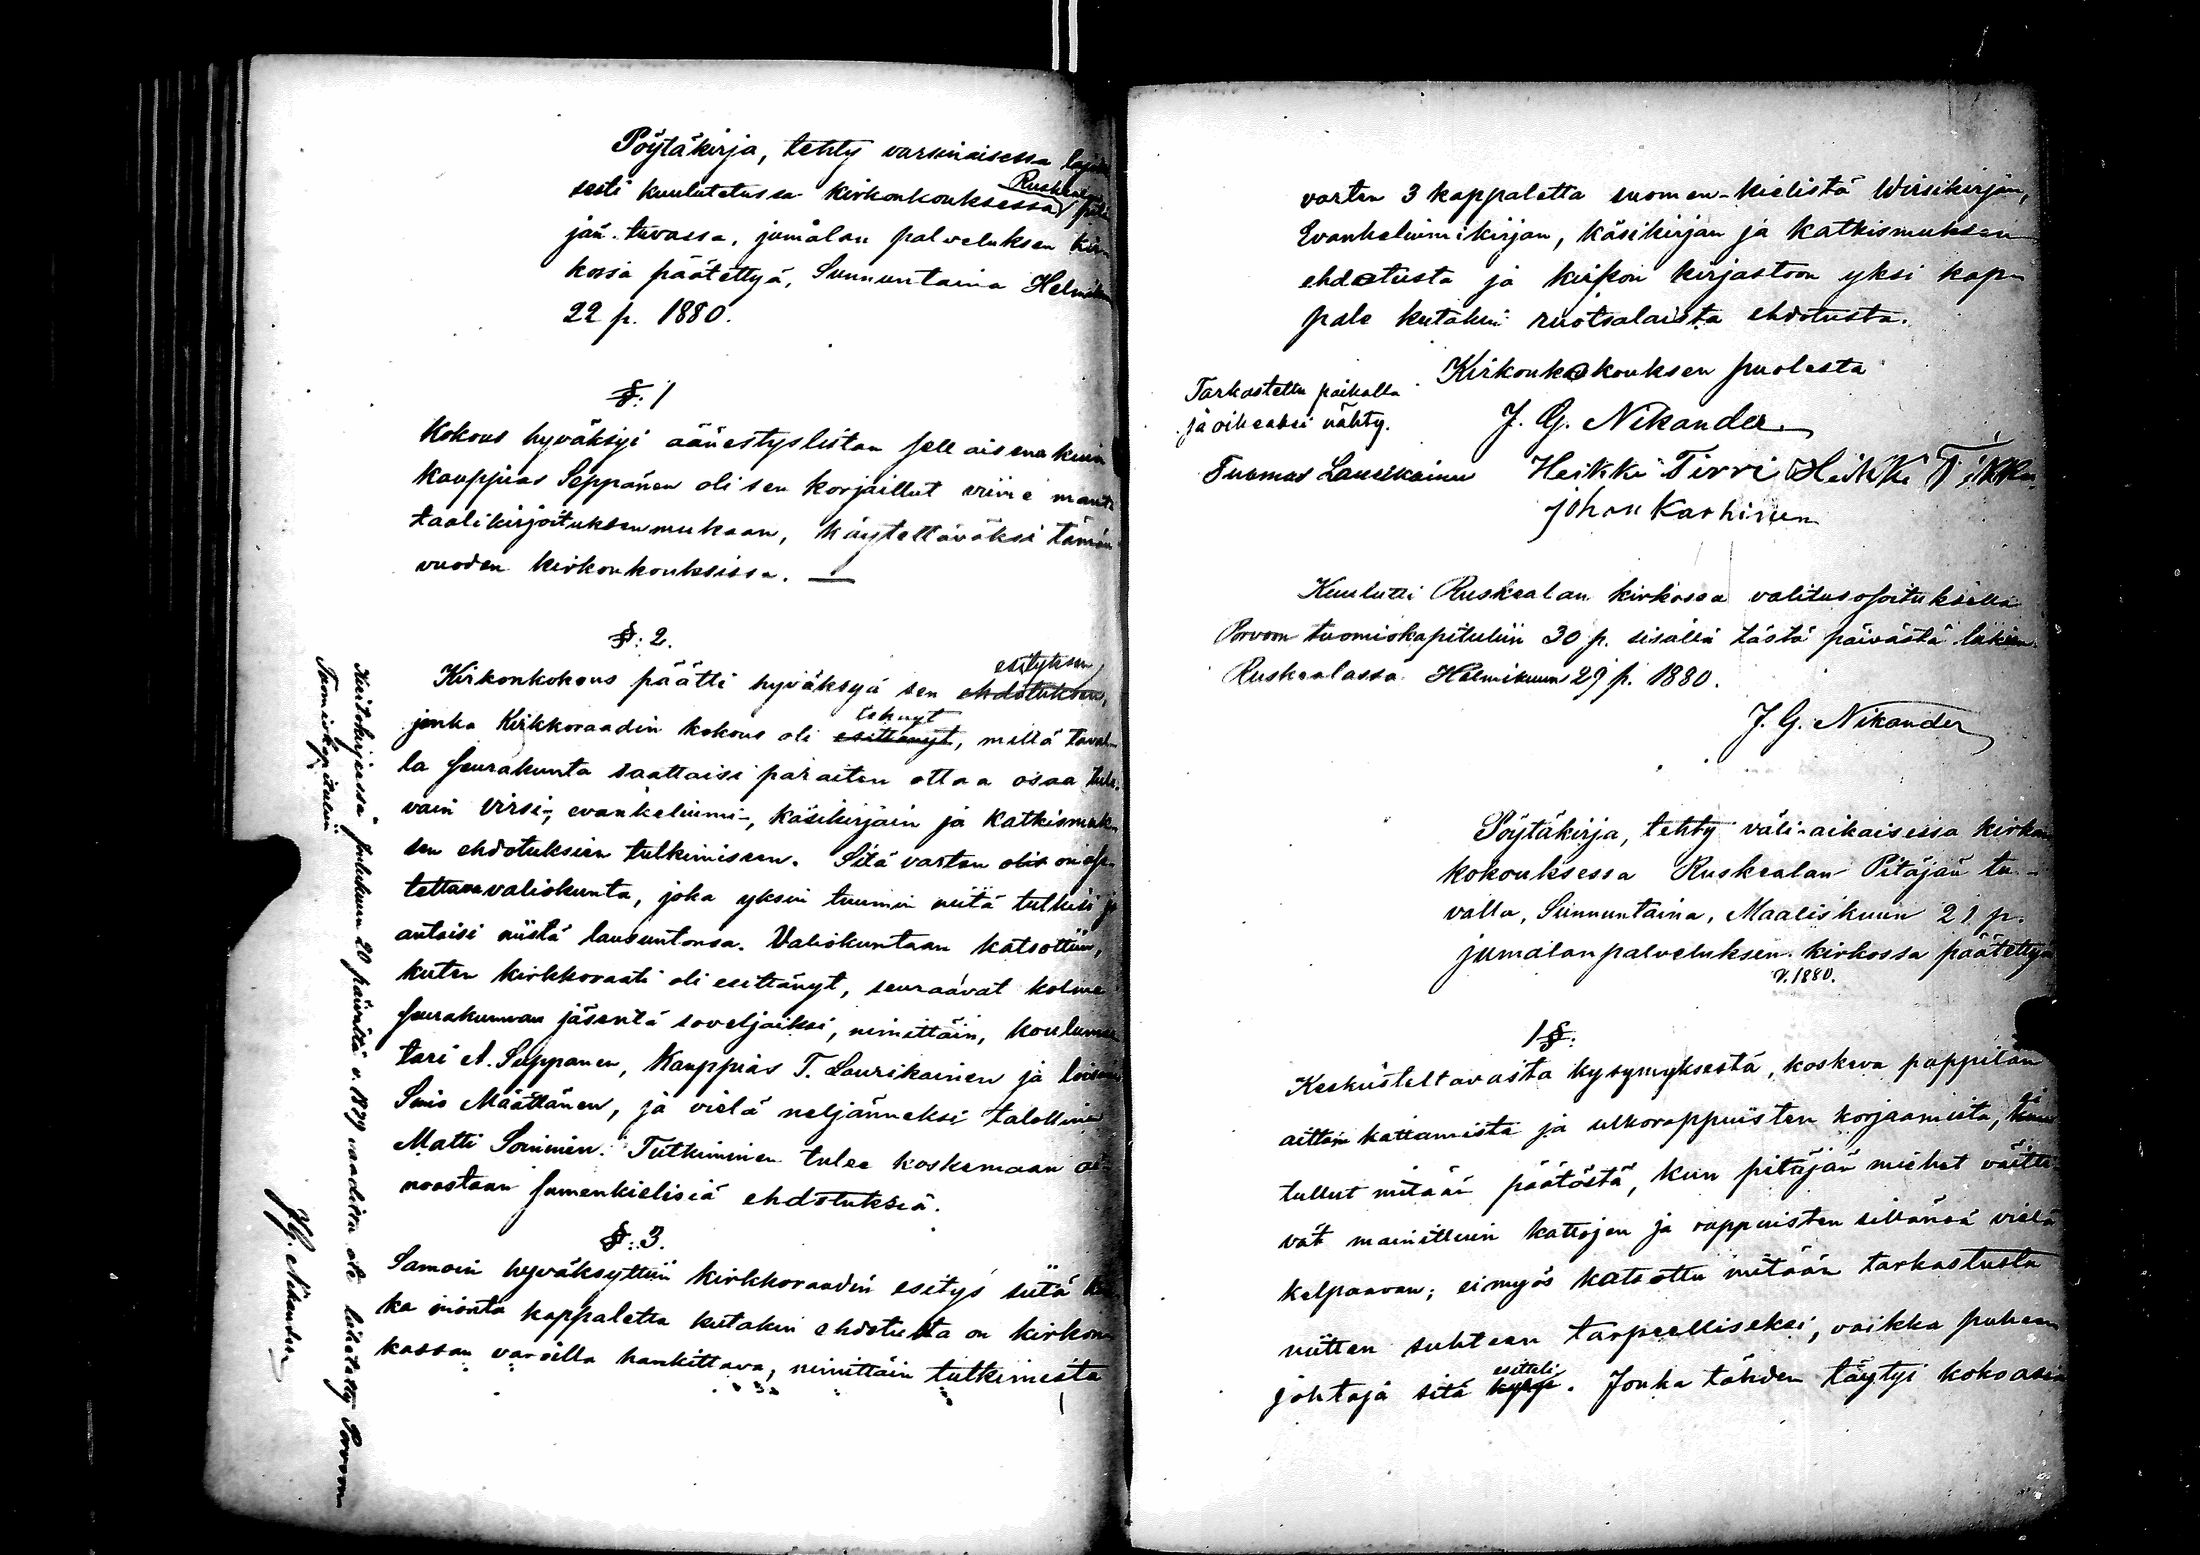 Pöytäkirja, tehty varsinaisessa
sesti kuulutetussa kirkonkouksessa Ruskealan
jän tuvassa, jumalan palveluksen
kossa päätettyä, Sunnuntaina Helmikuun
22 p. 1880.
§: 1
Kokous hyväksyi äänestyslistan sellaisena kuin
kauppias Seppänen oli sen korjaillut viime mant
taalikirjoituksen mukaan, käytettäväksi tämän
vuoden kirkonkouksissa. —
§: 2.
Kirkonkokous päätti hyväksyä sen ehdotuksen, esityksen
jonka Kirkkoraadin kokous oli esittänyt, tehnyt millä taval-
la seurakunta saattaisi paraiten ottaa osaa
vain virsi-, evankeliumi-, käsikirjain ja katkismuk-
sen ehdotuksien tutkimiseen. Sitä varten
tettava valiokunta, joka yksin tuumin niitä tutkisi ja
antaisi niistä lausuntonsa. Valiokuntaan katsottiin,
kuten kirkkoraati oli esittänyt, seuraavat kolme
seurakunnan jäsentä soveljaiksi, nimittäin, koulumes
tari A. Seppänen, Kauppias T. Laurikainen ja
Määttänen, ja vielä neljänneksi talollinen
Matti Soininen. Tutkiminen tulee koskemaan ai-
noastaan suomenkielisiä ehdotuksia.
§: 3.
Samoin hyväksyttiin kirkkoraadin esitys siitä
ka monta kappaletta kutakin ehdotusta on kirkon
kassan varoilla hankittava, nimittäin tutkimista
Kiertokirjeessä Joulukuun 20 päivältä v. 1879 vaadittu ote lähetetty Porvoon
Tuomiokapituliin
J. G. Nikander
varten 3 kappaletta suomen-kielistä Wirsikirjan,
Evankeliumikirjan, käsikirjan ja katkismuksen
ehdotusta ja kirkon kirjastoon yksi kap-
pale kutakin ruotsalaista ehdotusta.
Kirkonkokouksen puolesta
Tarkastettu paikalla
ja oikeaksi nähty.
J. G. Nikander
Tuomas Laurikainen Heikki Tirri Heikki Tikka
Johan Karhinen
Kuulutti Ruskealan kirkossa valitusosoituksella
Porvoon tuomiokapituliin 30 p. sisällä tästä päivästä lukien.
Ruskealassa Helmikuun 29 p. 1880.
J. G. Nikander
Pöytäkirja, tehty väli-aikaisessa kirkon
kokouksessa Ruskealan Pitäjän tu-
valla, Sunnuntaina, Maaliskuun 21 p.
jumalanpalveluksen kirkossa päätettyä
v. 1880.
1 §:
Keskusteltavasta kysymyksestä, koskeva pappilan
aittain kattamista ja ulkorappuisten korjaamista, ei
tullut mitään päätöstä, kun pitäjän miehet väitti
vät mainittuin kattojen ja rappuisten sillänsä vielä
kelpaavan; ei myös katsottu mitään tarkastusta
niitten suhteen tarpeelliseksi, vaikka puheen
johtaja sitä esitteli. Jonka tähden täytyi koko asia